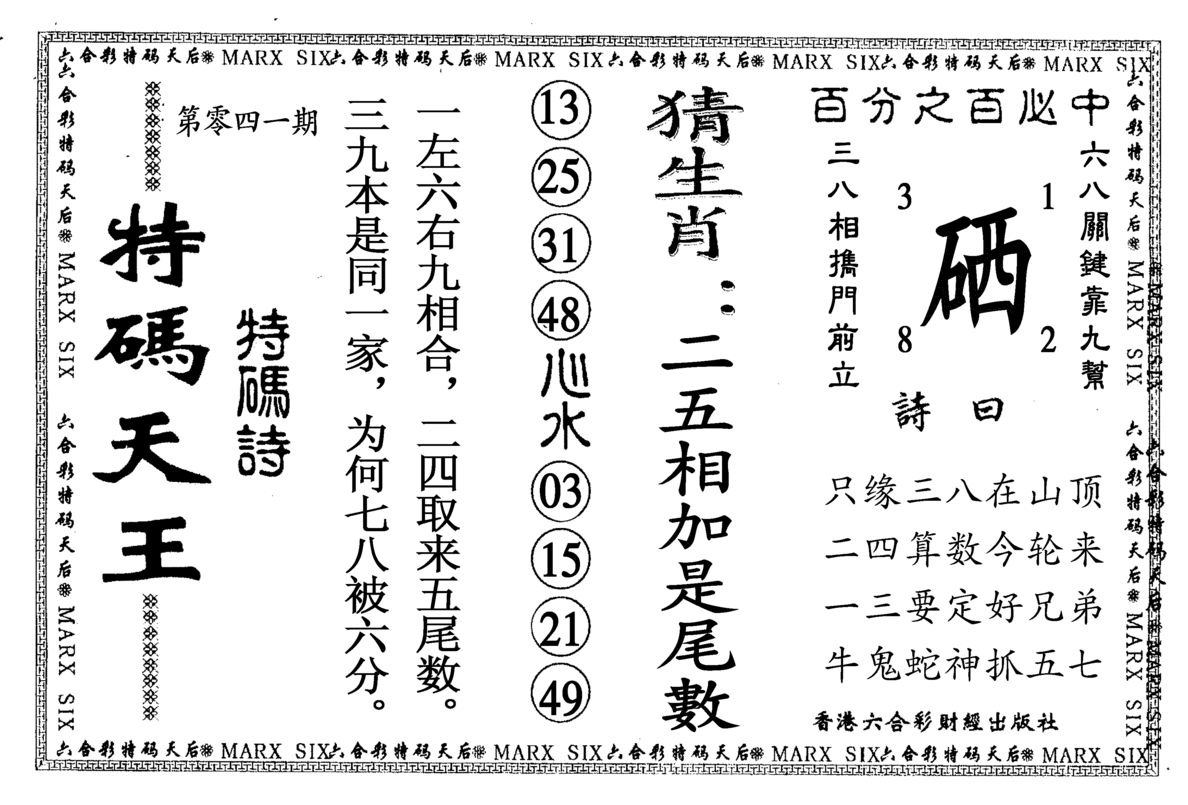 六合彩特码天后 MARX SIX 六合彩特码天后 MARX SIX 六合彩特码天后 MARX SIX 六合彩特码天后 MARX SIX
百分之百必中
六八關鍵靠九幫
三八相攜門前立
3 1
硒
8 2
詩曰
只缘三八在山顶
二四算数今轮来
一三要定好兄弟
牛鬼蛇神抓五七
香港六合彩財經出版社
猜生肖：二五相加是尾數
13
25
31
48
心水
03
15
21
49
一左六右九相合，二四取来五尾数。
三九本是同一家，为何七八被六分。
第零四一期
特碼詩
特碼天王
六合彩特码天后 MARX SIX 六合彩特码天后 MARX SIX
六合彩特码天后 MARX SIX 六合彩特码天后 MARX SIX
六合彩特码天后 MARX SIX 六合彩特码天后 MARX SIX 六合彩特码天后 MARX SIX 六合彩特码天后 MARX SIX